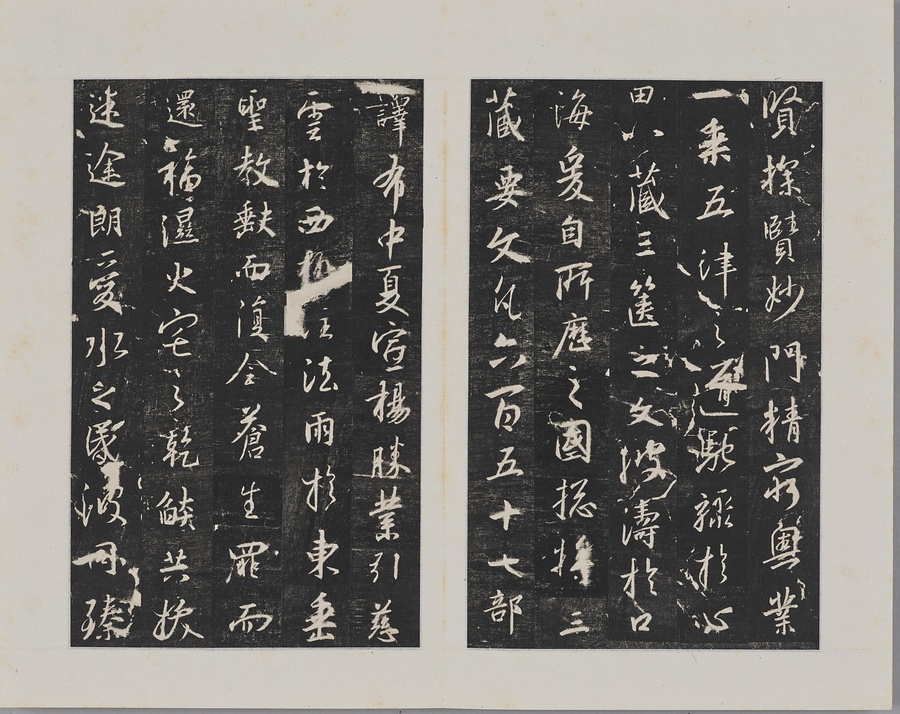 賢探賾妙門精窮奧業
一乘五律之道馳驟於心
田八藏三篋之文波濤於口
海爰自所歷之國揔將三
藏要文凡六百五十七部
譯布中夏宣楊勝業引慈
雲於西極注法雨於東垂
聖教缺而復全蒼生罷而
還福濕火宅之乾燄共拔
迷途朗愛水之昬波同臻